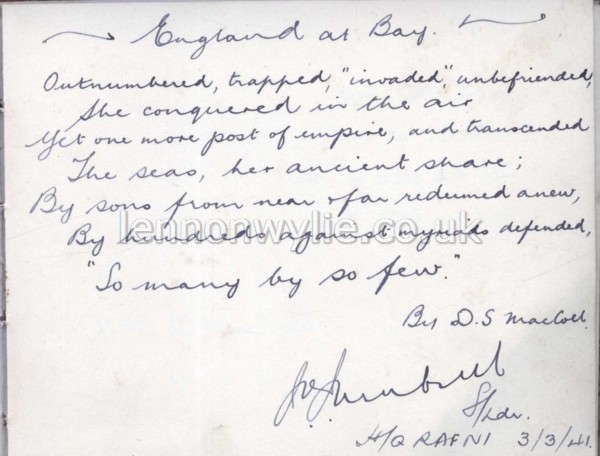 England at Bay.
Outnumbered, trapped, "invaded", unbefriended,
She conquered in the air
Yet one more post of empire, and transcended
The seas, her ancient share;
By sons from near & far redeemed anew,
lennonwylie.co.uk
By hundreds against myriads defended,
"So many by so few."
By D.S MacColl.
S/Ldr.
H/Q RAFNI 3/3/41.